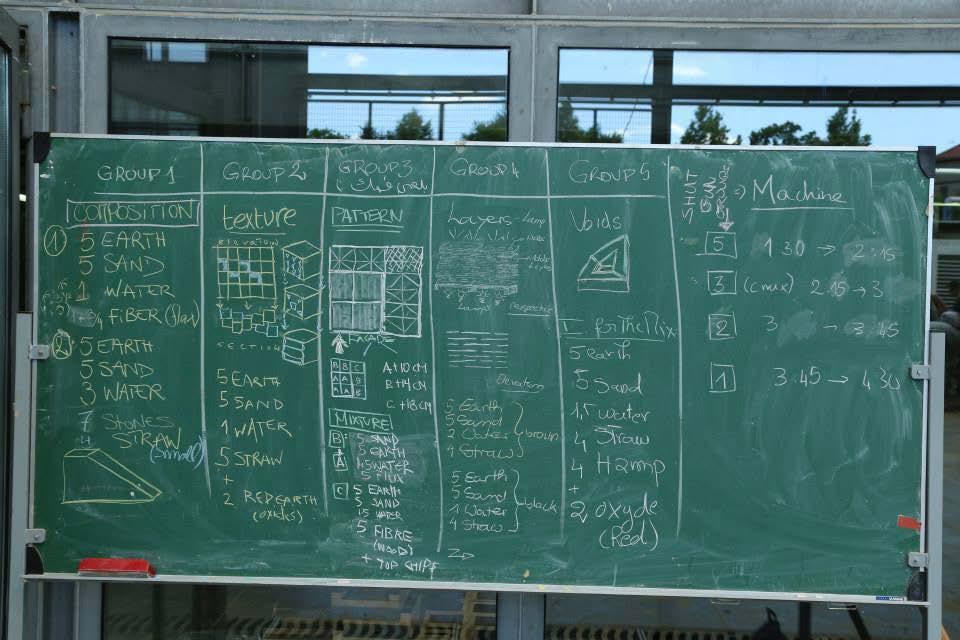 GROUP 1
COMPOSITION
1
5 EARTH
5 SAND
1 WATER
FIBER (flax)
2
5 EARTH
5 SAND
3 WATER
7 Stones
4 STRAW
(small)
GROUP 2
texture
ELEVATION
SECTION
5 EARTH
5 SAND
1 WATER
5 STRAW
+
2 RED EARTH
(OXIDES)
GROUP 3
PATTERN
FACADE
B B C
A A B
A B
A+10 CM
B+14 CM
C+18 CM
MIXTURE
B: 5 SAND
5 EARTH
A 1.5 WATER
C 5 EARTH
5 SAND
1.5 WATER
5 FIBRE
(WOOD)
+ TOP CHIPS
GROUP 4
Layers
Perspective
Elevation
5 Earth
5 Sand
2 Water
4 Straw
brown
5 Earth
5 Sand
1 Water
4 Straw
black
GROUP 5
Voids
I. for the Mix
5 earth
5 Sand
1,5 water
4 Straw
4 Hamp
+
2 oxyde
(Red)
SHUT
DOWN
=) Machine
5 1 30 → 2:15
3 (c mix) 2.15 → 3
2 3 → 3:45
1 3.45 → 4 30